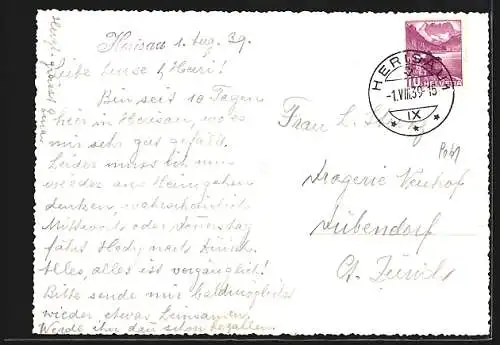 Herisau 1. Aug. 39.
Liebe Luise & Heiri!
Bin seit 10 Tagen
hier in Herisau, wo es
mir sehr gut gefällt.
Leider muss ich nun
wieder ans Heimgehen
denken, wahrscheinlich
Mittwoch oder Donnerstag
fährt Hedy nach Zürich.
Alles, alles ist vergänglich!
Bitte sende mir baldmöglichst
wieder etwas Leinsamen,
Werde ihn dann schon bezahlen.
Herzl. grüsst
HERISAU
-1.VIII.39-15
IX
HELVETIA
Frau L.
Drogerie Neuhof
Dübendorf
Ct. Zürich